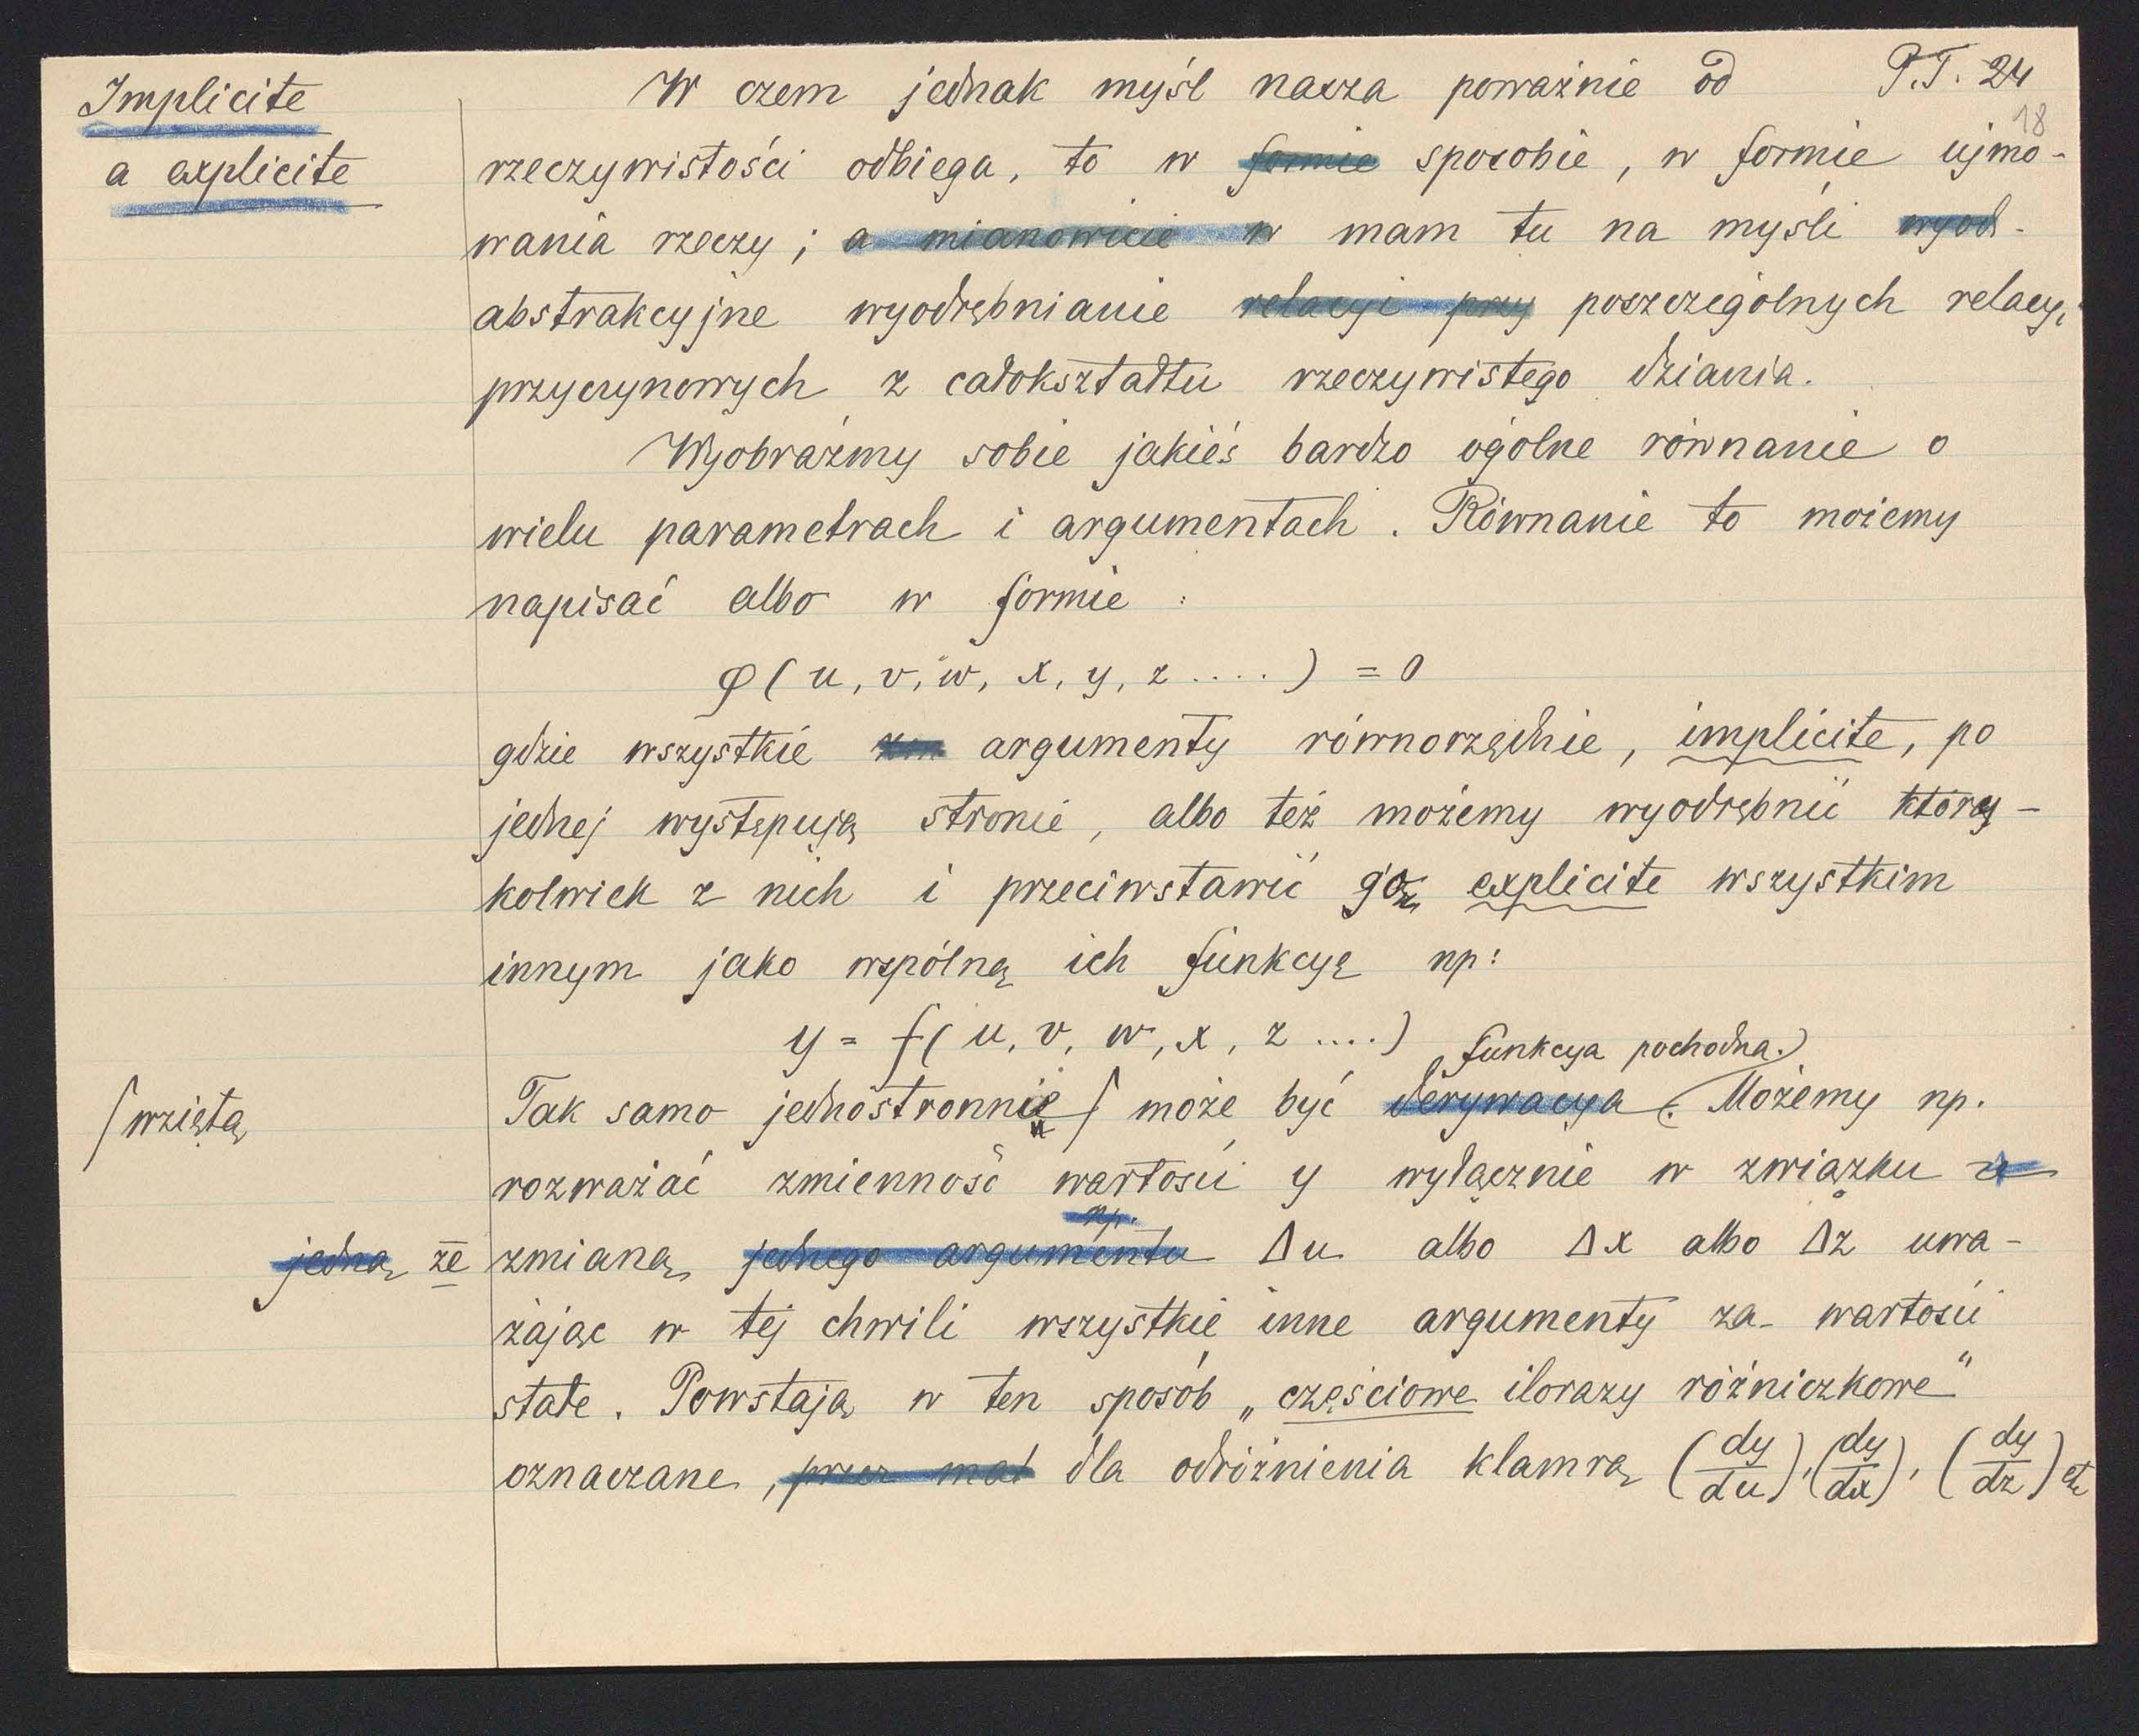 Implicite
a explicite
W czem jednak myśl nasza poważnie od
P.T. 24
18
rzeczywistości odbiega, to w formie sposobie, w formie ujmo-
wania rzeczy; a mianowicie w mam tu na myśli wyod-
abstrakcyjne wyodrębnianie relacyi przy poszczególnych relacyi
przyczynowych z całokształtu rzeczywistego dziania.
Wyobraźmy sobie jakieś bardzo ogólne równanie o
wielu parametrach i argumentach. Równanie to możemy
napisać albo w formie:
φ(u, v, w, x, y, z ....) = 0
gdzie wszystkie argumenty równorzędnie, implicite, po
jednej występują stronie, albo też możemy wyodrębnić który-
kolwiek z nich i przeciwstawić go explicite wszystkim
innym jako wspólną ich funkcyę np:
y = f(u, v, w, x, z ....)
funkcya pochodna.
/wziętą
Tak samo jednostronnie / może być derywacya. Możemy np.
rozważać zmienność wartości y wyłącznie w związku z
np.
jedną ze zmianą jednego argumentu Δu albo Δx albo Δz uwa-
żając w tej chwili wszystkie inne argumenty za wartości
stałe. Powstają w ten sposób „częściowe ilorazy różniczkowe"
oznaczane, przez mał dla odróżnienia klamrą (dy/du), (dy/dx), (dy/dz) etc